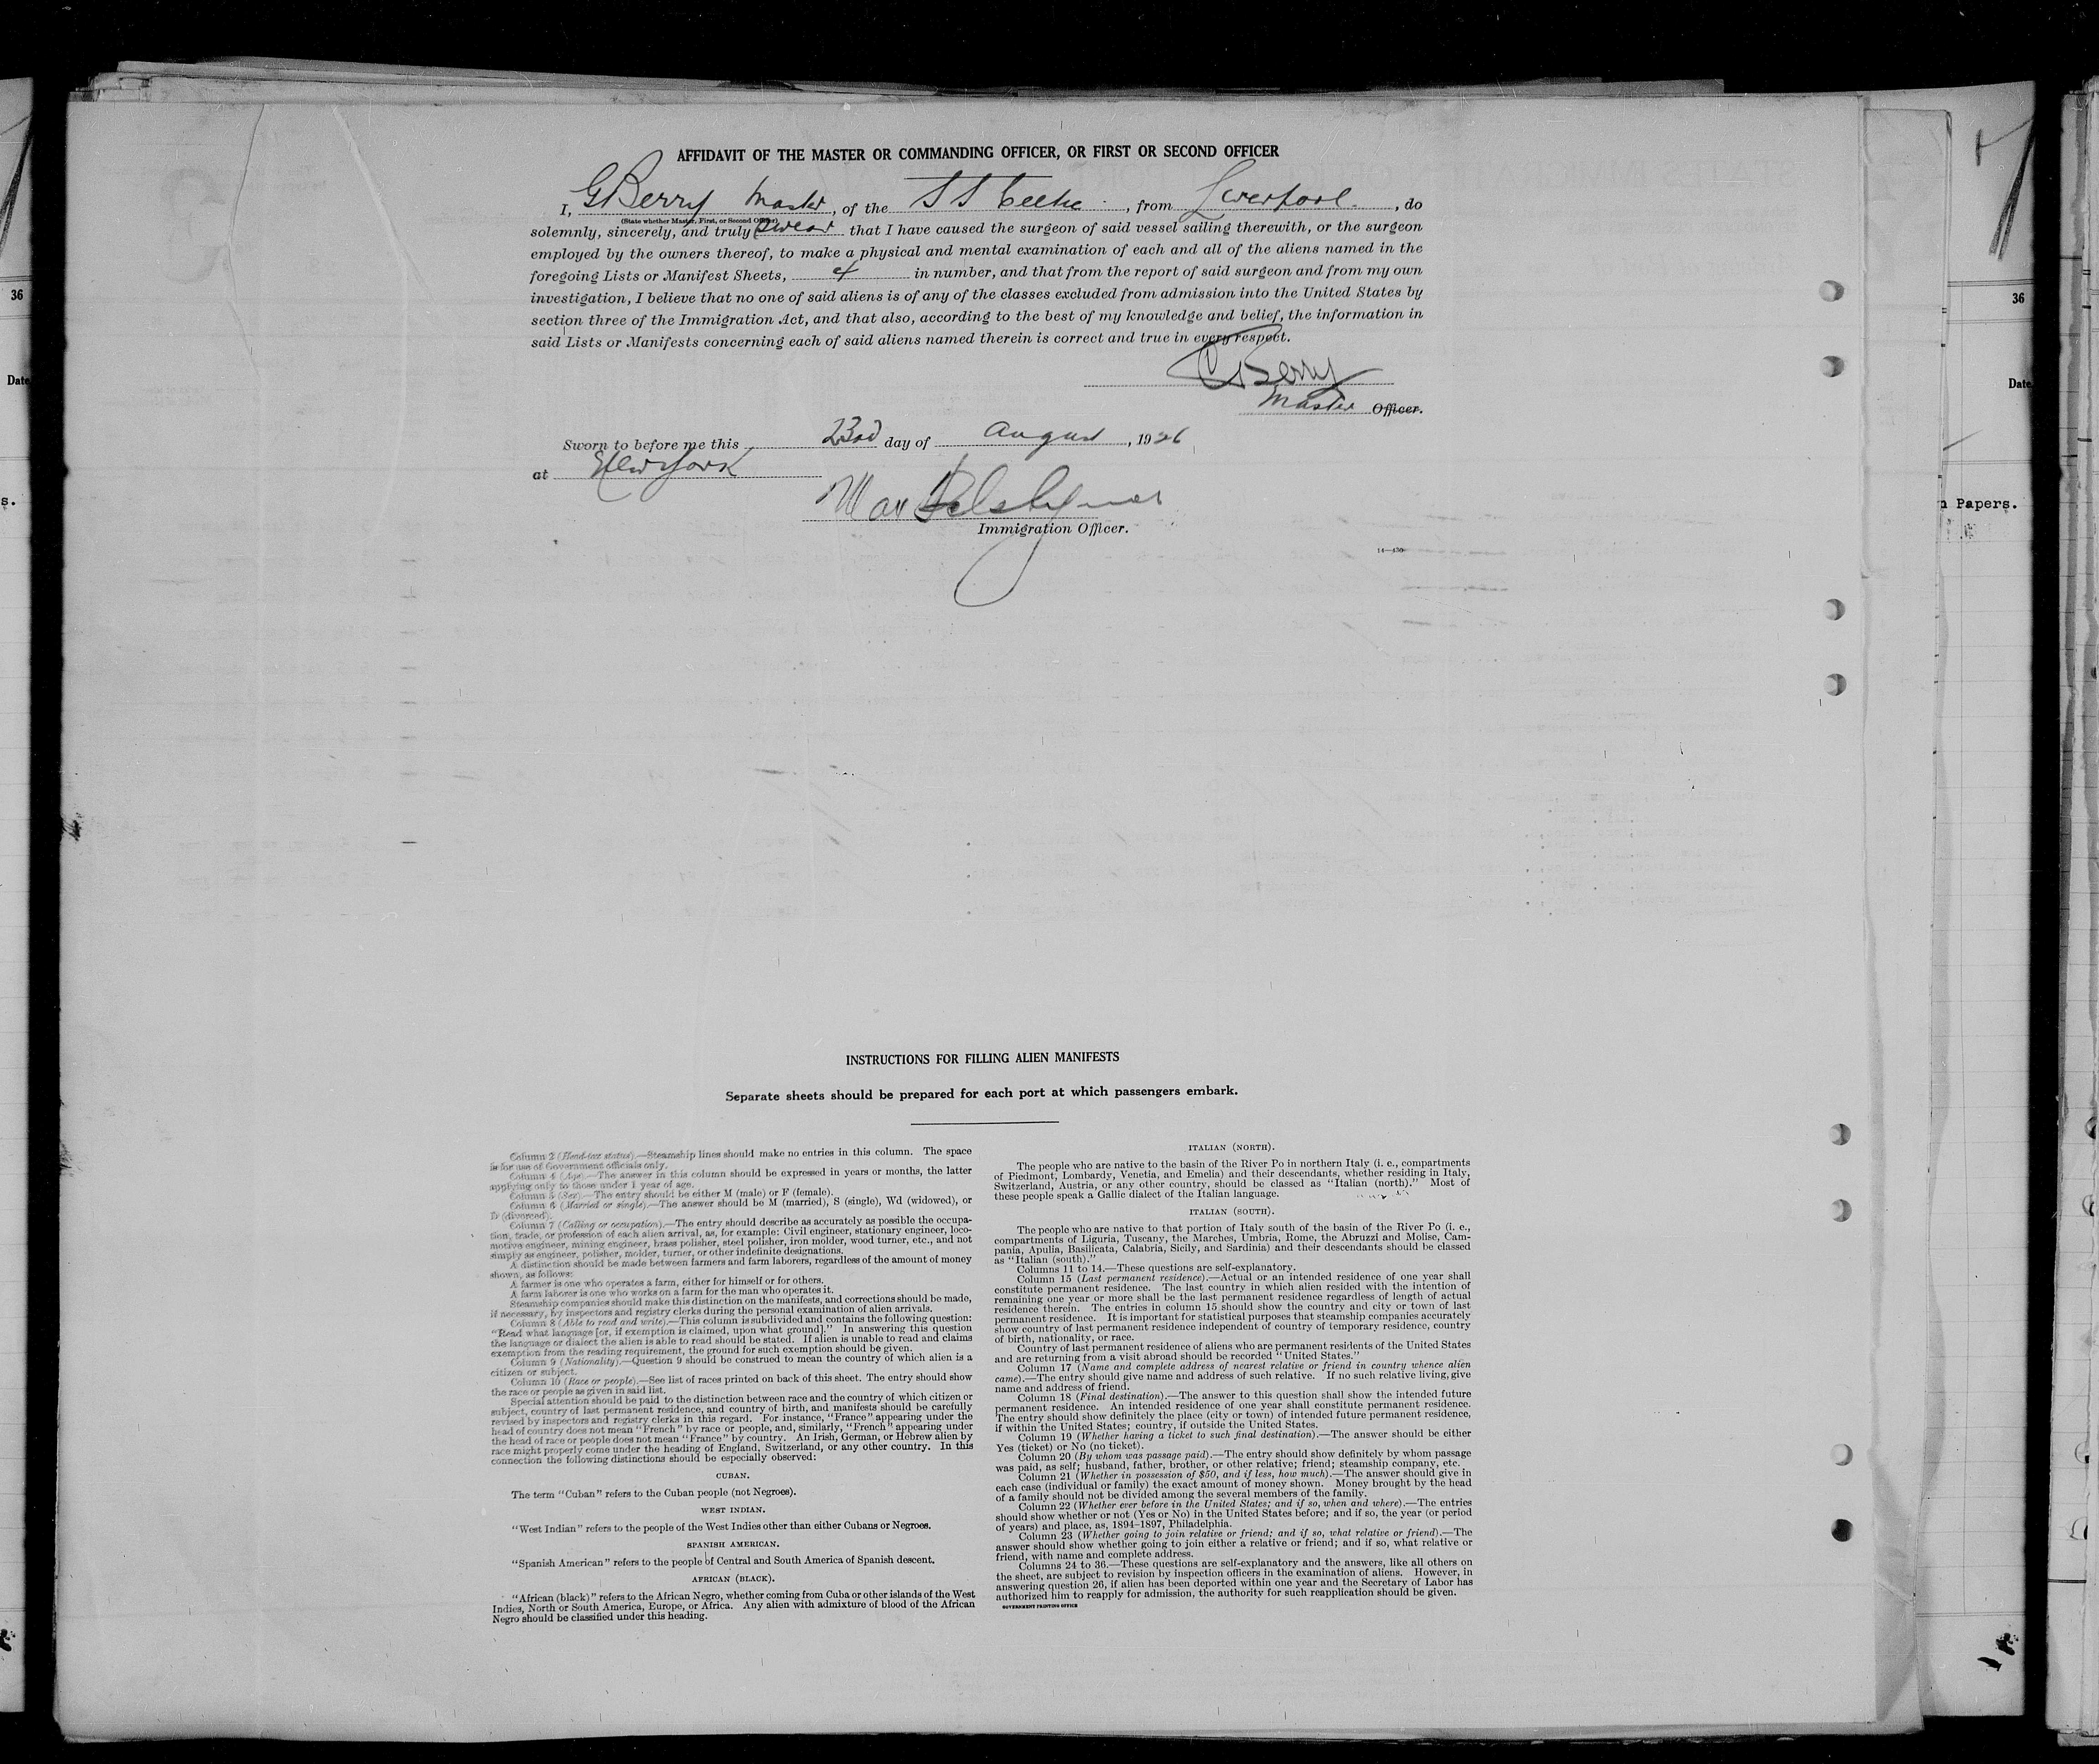 AFFIDAVIT OF THE MASTER OR COMMANDING OFFICER, OR FIRST OR SECOND OFFICER
I, G Berry Master, of the S S Celtic, from Liverpool, do
(State whether Master, First, or Second Officer)
solemnly, sincerely, and truly swear that I have caused the surgeon of said vessel sailing therewith, or the surgeon
employed by the owners thereof, to make a physical and mental examination of each and all of the aliens named in the
foregoing Lists or Manifest Sheets, 4 in number, and that from the report of said surgeon and from my own
investigation, I believe that no one of said aliens is of any of the classes excluded from admission into the United States by
section three of the Immigration Act, and that also, according to the best of my knowledge and belief, the information in
said Lists or Manifests concerning each of said aliens named therein is correct and true in every respect.
G Berry
Master Officer.
Sworn to before me this 23rd day of August, 1926
at New York
Max
Immigration Officer.
14—430
INSTRUCTIONS FOR FILLING ALIEN MANIFESTS
Separate sheets should be prepared for each port at which passengers embark.
Column 2 (Head-tax status).—Steamship lines should make no entries in this column. The space
is for use of Government officials only.
Column 4 (Age).—The answer in this column should be expressed in years or months, the latter
applying only to those under 1 year of age.
Column 5 (Sex).—The entry should be either M (male) or F (female).
Column 6 (Married or single).—The answer should be M (married), S (single), Wd (widowed), or
D (divorced).
Column 7 (Calling or occupation).—The entry should describe as accurately as possible the occupa-
tion, trade, or profession of each alien arrival, as, for example: Civil engineer, stationary engineer, loco-
motive engineer, mining engineer, brass polisher, steel polisher, iron molder, wood turner, etc., and not
simply as engineer, polisher, molder, turner, or other indefinite designations.
A distinction should be made between farmers and farm laborers, regardless of the amount of money
shown, as follows:
A farmer is one who operates a farm, either for himself or for others.
A farm laborer is one who works on a farm for the man who operates it.
Steamship companies should make this distinction on the manifests, and corrections should be made,
if necessary, by inspectors and registry clerks during the personal examination of alien arrivals.
Column 8 (Able to read and write).—This column is subdivided and contains the following question:
"Read what language [or, if exemption is claimed, upon what ground]." In answering this question
the language or dialect the alien is able to read should be stated. If alien is unable to read and claims
exemption from the reading requirement, the ground for such exemption should be given.
Column 9 (Nationality).—Question 9 should be construed to mean the country of which alien is a
citizen or subject.
Column 10 (Race or people).—See list of races printed on back of this sheet. The entry should show
the race or people as given in said list.
Special attention should be paid to the distinction between race and the country of which citizen or
subject, country of last permanent residence, and country of birth, and manifests should be carefully
revised by inspectors and registry clerks in this regard. For instance, "France" appearing under the
head of country does not mean "French" by race or people, and, similarly, "French" appearing under
the head of race or people does not mean "France" by country. An Irish, German, or Hebrew alien by
race might properly come under the heading of England, Switzerland, or any other country. In this
connection the following distinctions should be especially observed:
CUBAN.
The term "Cuban" refers to the Cuban people (not Negroes).
WEST INDIAN.
"West Indian" refers to the people of the West Indies other than either Cubans or Negroes.
SPANISH AMERICAN.
"Spanish American" refers to the people of Central and South America of Spanish descent.
AFRICAN (BLACK).
"African (black)" refers to the African Negro, whether coming from Cuba or other islands of the West
Indies, North or South America, Europe, or Africa. Any alien with admixture of blood of the African
Negro should be classified under this heading.
ITALIAN (NORTH).
The people who are native to the basin of the River Po in northern Italy (i. e., compartments
of Piedmont, Lombardy, Venetia, and Emelia) and their descendants, whether residing in Italy,
Switzerland, Austria, or any other country, should be classed as "Italian (north)." Most of
these people speak a Gallic dialect of the Italian language.
ITALIAN (SOUTH).
The people who are native to that portion of Italy south of the basin of the River Po (i. e.,
compartments of Liguria, Tuscany, the Marches, Umbria, Rome, the Abruzzi and Molise, Cam-
pania, Apulia, Basilicata, Calabria, Sicily, and Sardinia) and their descendants should be classed
as "Italian (south)."
Columns 11 to 14.—These questions are self-explanatory.
Column 15 (Last permanent residence).—Actual or an intended residence of one year shall
constitute permanent residence. The last country in which alien resided with the intention of
remaining one year or more shall be the last permanent residence regardless of length of actual
residence therein. The entries in column 15 should show the country and city or town of last
permanent residence. It is important for statistical purposes that steamship companies accurately
show country of last permanent residence independent of country of temporary residence, country
of birth, nationality, or race.
Country of last permanent residence of aliens who are permanent residents of the United States
and are returning from a visit abroad should be recorded "United States."
Column 17 (Name and complete address of nearest relative or friend in country whence alien
came).—The entry should give name and address of such relative. If no such relative living, give
name and address of friend.
Column 18 (Final destination).—The answer to this question shall show the intended future
permanent residence. An intended residence of one year shall constitute permanent residence.
The entry should show definitely the place (city or town) of intended future permanent residence,
if within the United States; country, if outside the United States.
Column 19 (Whether having a ticket to such final destination).—The answer should be either
Yes (ticket) or No (no ticket).
Column 20 (By whom was passage paid).—The entry should show definitely by whom passage
was paid, as self; husband, father, brother, or other relative; friend; steamship company, etc.
Column 21 (Whether in possession of $50, and if less, how much).—The answer should give in
each case (individual or family) the exact amount of money shown. Money brought by the head
of a family should not be divided among the several members of the family.
Column 22 (Whether ever before in the United States; and if so, when and where).—The entries
should show whether or not (Yes or No) in the United States before; and if so, the year (or period
of years) and place, as, 1894-1897, Philadelphia.
Column 23 (Whether going to join relative or friend; and if so, what relative or friend).—The
answer should show whether going to join either a relative or friend; and if so, what relative or
friend, with name and complete address.
Columns 24 to 36.—These questions are self-explanatory and the answers, like all others on
the sheet, are subject to revision by inspection officers in the examination of aliens. However, in
answering question 26, if alien has been deported within one year and the Secretary of Labor has
authorized him to reapply for admission, the authority for such reapplication should be given.
GOVERNMENT PRINTING OFFICE
36
Date
s.
36
Date
Papers.